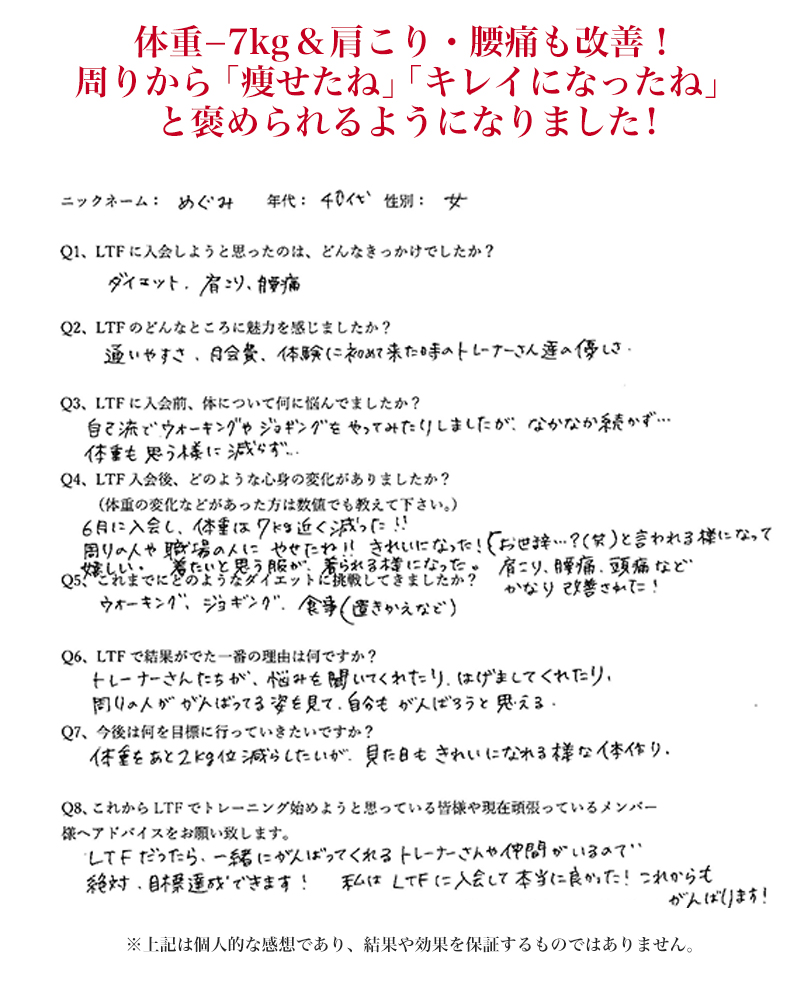 体重−7kg＆肩こり・腰痛も改善！
周りから「痩せたね」「キレイになったね」
と褒められるようになりました！
ニックネーム： めぐみ 年代： 40代 性別： 女
Q1、LTFに入会しようと思ったのは、どんなきっかけでしたか？
ダイエット、肩こり、腰痛
Q2、LTFのどんなところに魅力を感じましたか？
通いやすさ、月会費、体験に初めて来た時のトレーナーさん達の優しさ．
Q3、LTFに入会前、体について何に悩んでましたか？
自己流でウォーキングやジョギングをやってみたりしましたが、なかなか続かず…
体重も思う様に減らず…
Q4、LTF入会後、どのような心身の変化がありましたか？
（体重の変化などがあった方は数値でも教えて下さい。）
6月に入会し、体重は7kg近く減った!!
周りの人や職場の人に やせたね!! きれいになった!(お世辞…?(笑)と言われる様になって
嬉しい。 着たいと思う服が、着られる様になった。 肩こり、腰痛、頭痛など
かなり改善された！
Q5、これまでにどのようなダイエットに挑戦してきましたか？
ウォーキング、ジョギング、食事(置きかえなど)
Q6、LTFで結果がでた一番の理由は何ですか？
トレーナーさんたちが、悩みを聞いてくれたり、はげましてくれたり、
周りの人ががんばってる姿を見て、自分もがんばろうと思える．
Q7、今後は何を目標に行っていきたいですか？
体重をあと2kg位減らしたいが、見た目もきれいになれる様な体作り．
Q8、これからLTFでトレーニング始めようと思っている皆様や現在頑張っているメンバー
様へアドバイスをお願い致します。
LTFだったら、一緒にがんばってくれるトレーナーさんや仲間がいるので
絶対、目標達成できます！ 私はLTFに入会して本当に良かった！これからも
がんばります！
※上記は個人的な感想であり、結果や効果を保証するものではありません。